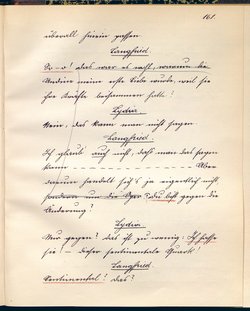 161.
überall hinein passen
Langfried
So – o! Das war es wohl, warum die
Undine meine erste Liebe wurde, weil sie
ihre Kräfte beisammen hatte!
Lydia.
Nein, das kann man nicht sagen
Langfried.
Ich glaub auch nicht, daß man das sagen
kann Aber
darum handelt sich's ja eigentlich nicht
sondern um die Oper. Du bist gegen die
Änderung?
Lydia
Nur gegen? das ist zu wenig: Ich hasse
sie – dieser sentimentale Quark!
Langfried
Sentimental! das?